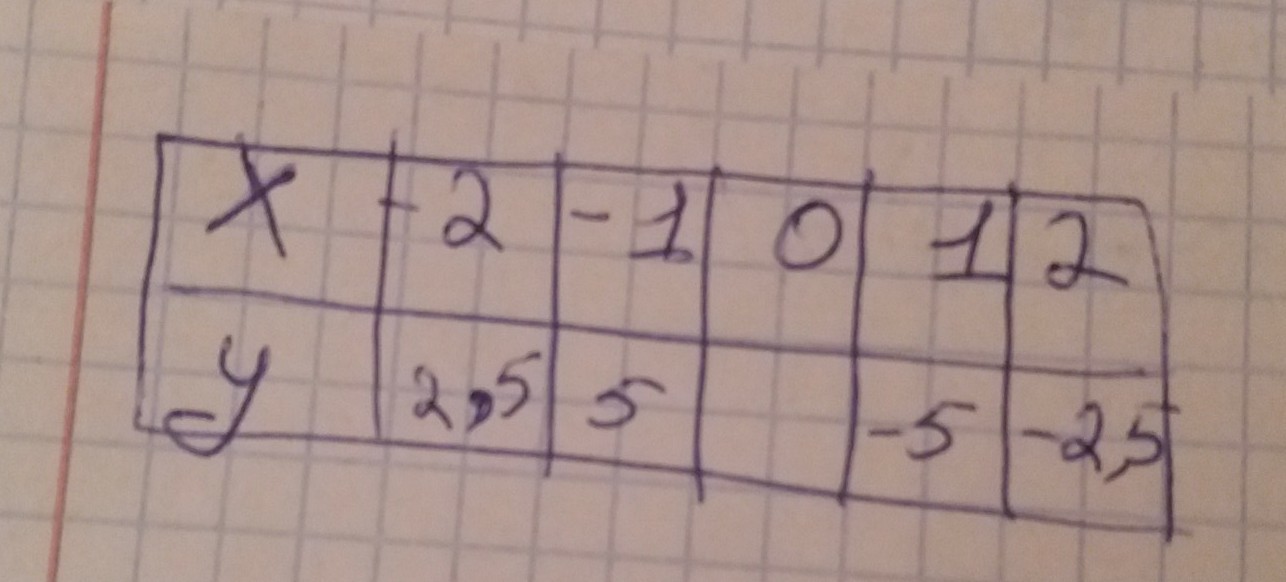 x -2 -1 0 1 2
y 2,5 5 -5 -2,5